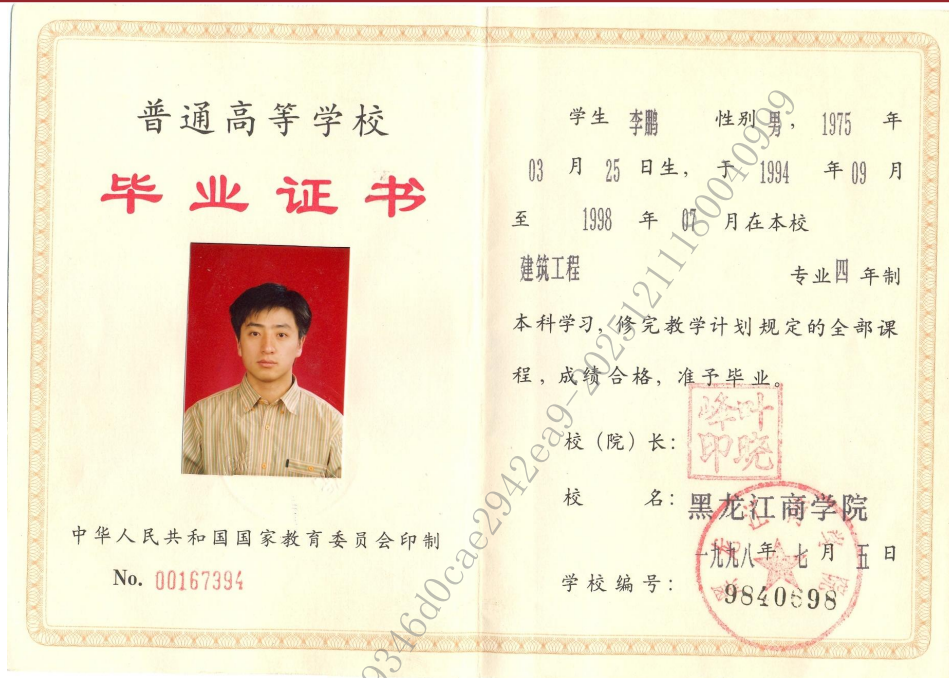 普通高等学校
毕业证书
中华人民共和国国家教育委员会印制
No. 00167394
学生 李鹏 性别 男，1975 年
03 月 25 日生，于 1994 年 09 月
至 1998 年 07 月在本校
建筑工程 专业 四 年制
本科学习，修完教学计划规定的全部课
程，成绩合格，准予毕业。
校（院）长：
叶晓峰印
校 名：黑龙江商学院
一九九八年 七 月 五 日
学校编号：9840698
9346d0cae2942ea9-20251211118004099​9